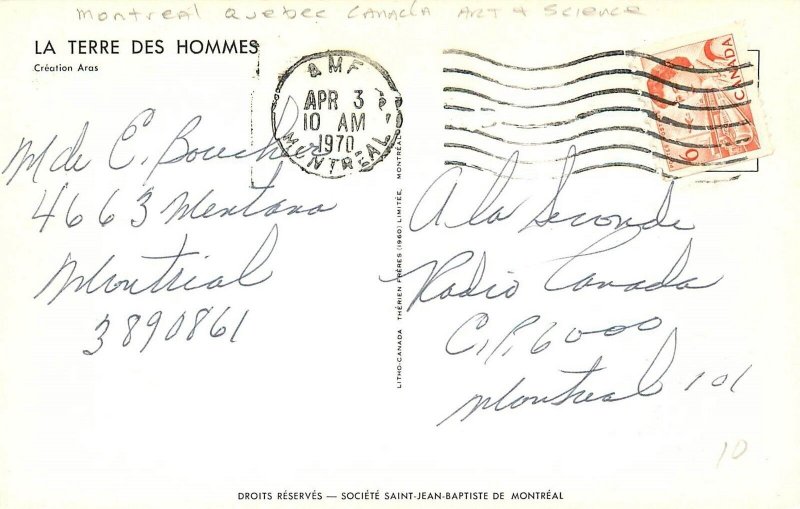 Montreal Quebec Canada Art & Science
LA TERRE DES HOMMES
Création Aras
AMF
APR 3
10 AM
1970
MONTRÉAL
CANADA
6
Mde E. Boucher
4663 Mentana
Montreal
3890861
LITHO-CANADA THÉRIEN FRÈRES (1960) LIMITÉE, MONTRÉAL
A la Seconde
Radio Canada
C.P. 6000
Montreal 101
10
DROITS RÉSERVÉS — SOCIÉTÉ SAINT-JEAN-BAPTISTE DE MONTRÉAL